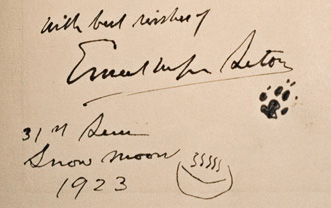 with best wishes of
Ernest Thompson Seton
31st Sun
Snow Moon
1923